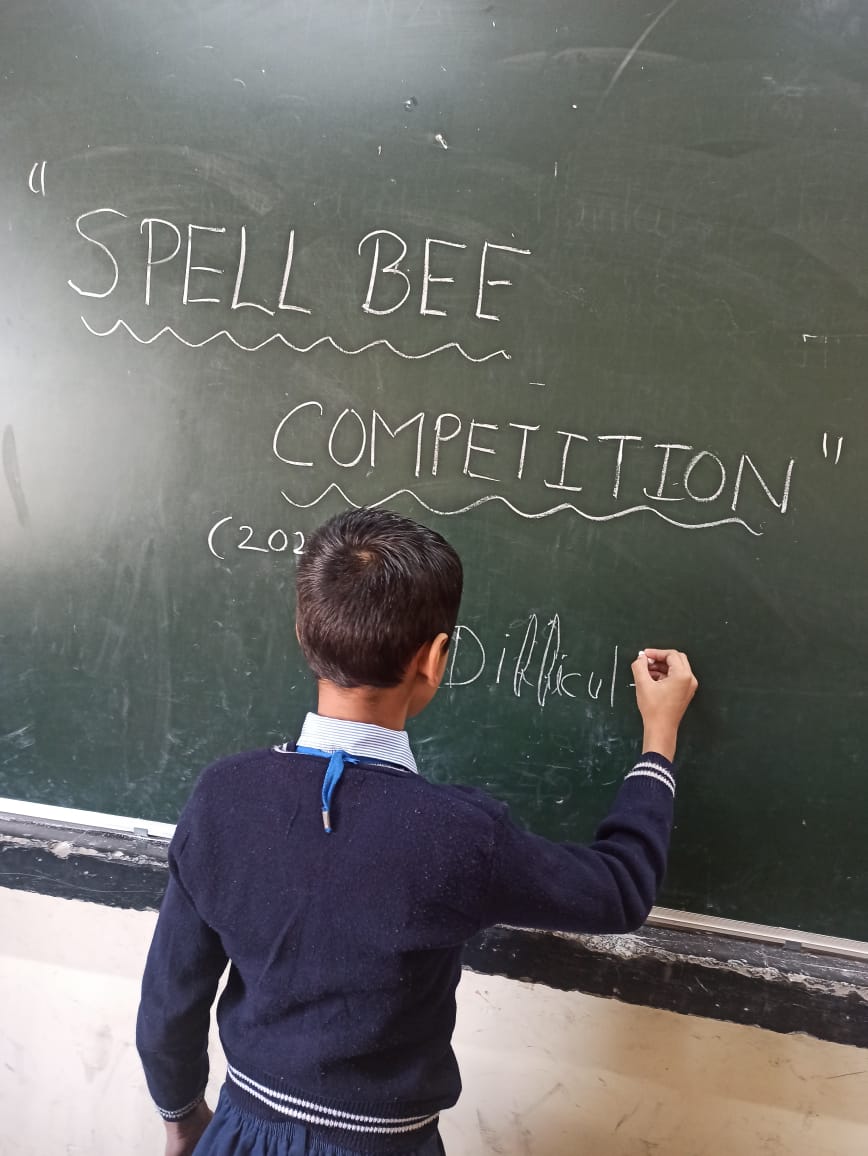 "SPELL BEE
COMPETITION"
(202
Difficul